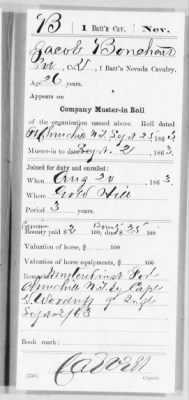 B | 1 Batt'n Cav. | Nev.
Jacob
Pvt, Co. , 1 Batt'n Nevada Cavalry.
Age 26 years.
Appears on
Company Muster-in Roll
of the organization named above. Roll dated
Ft Churchill N.T. Sept 25, 1863
Muster-in to date Sept. 2, 1863
Joined for duty and enrolled:
When Aug 20, 1863
Where Gold Hill
Period 3 years.
Bounty paid $ 100; due $ 100
Valuation of horse, $ 100
Valuation of horse equipments, $ 100
Fort
Churchill N.T. by Capt
Inft
Sept 2/63
Book mark:
Copyist.